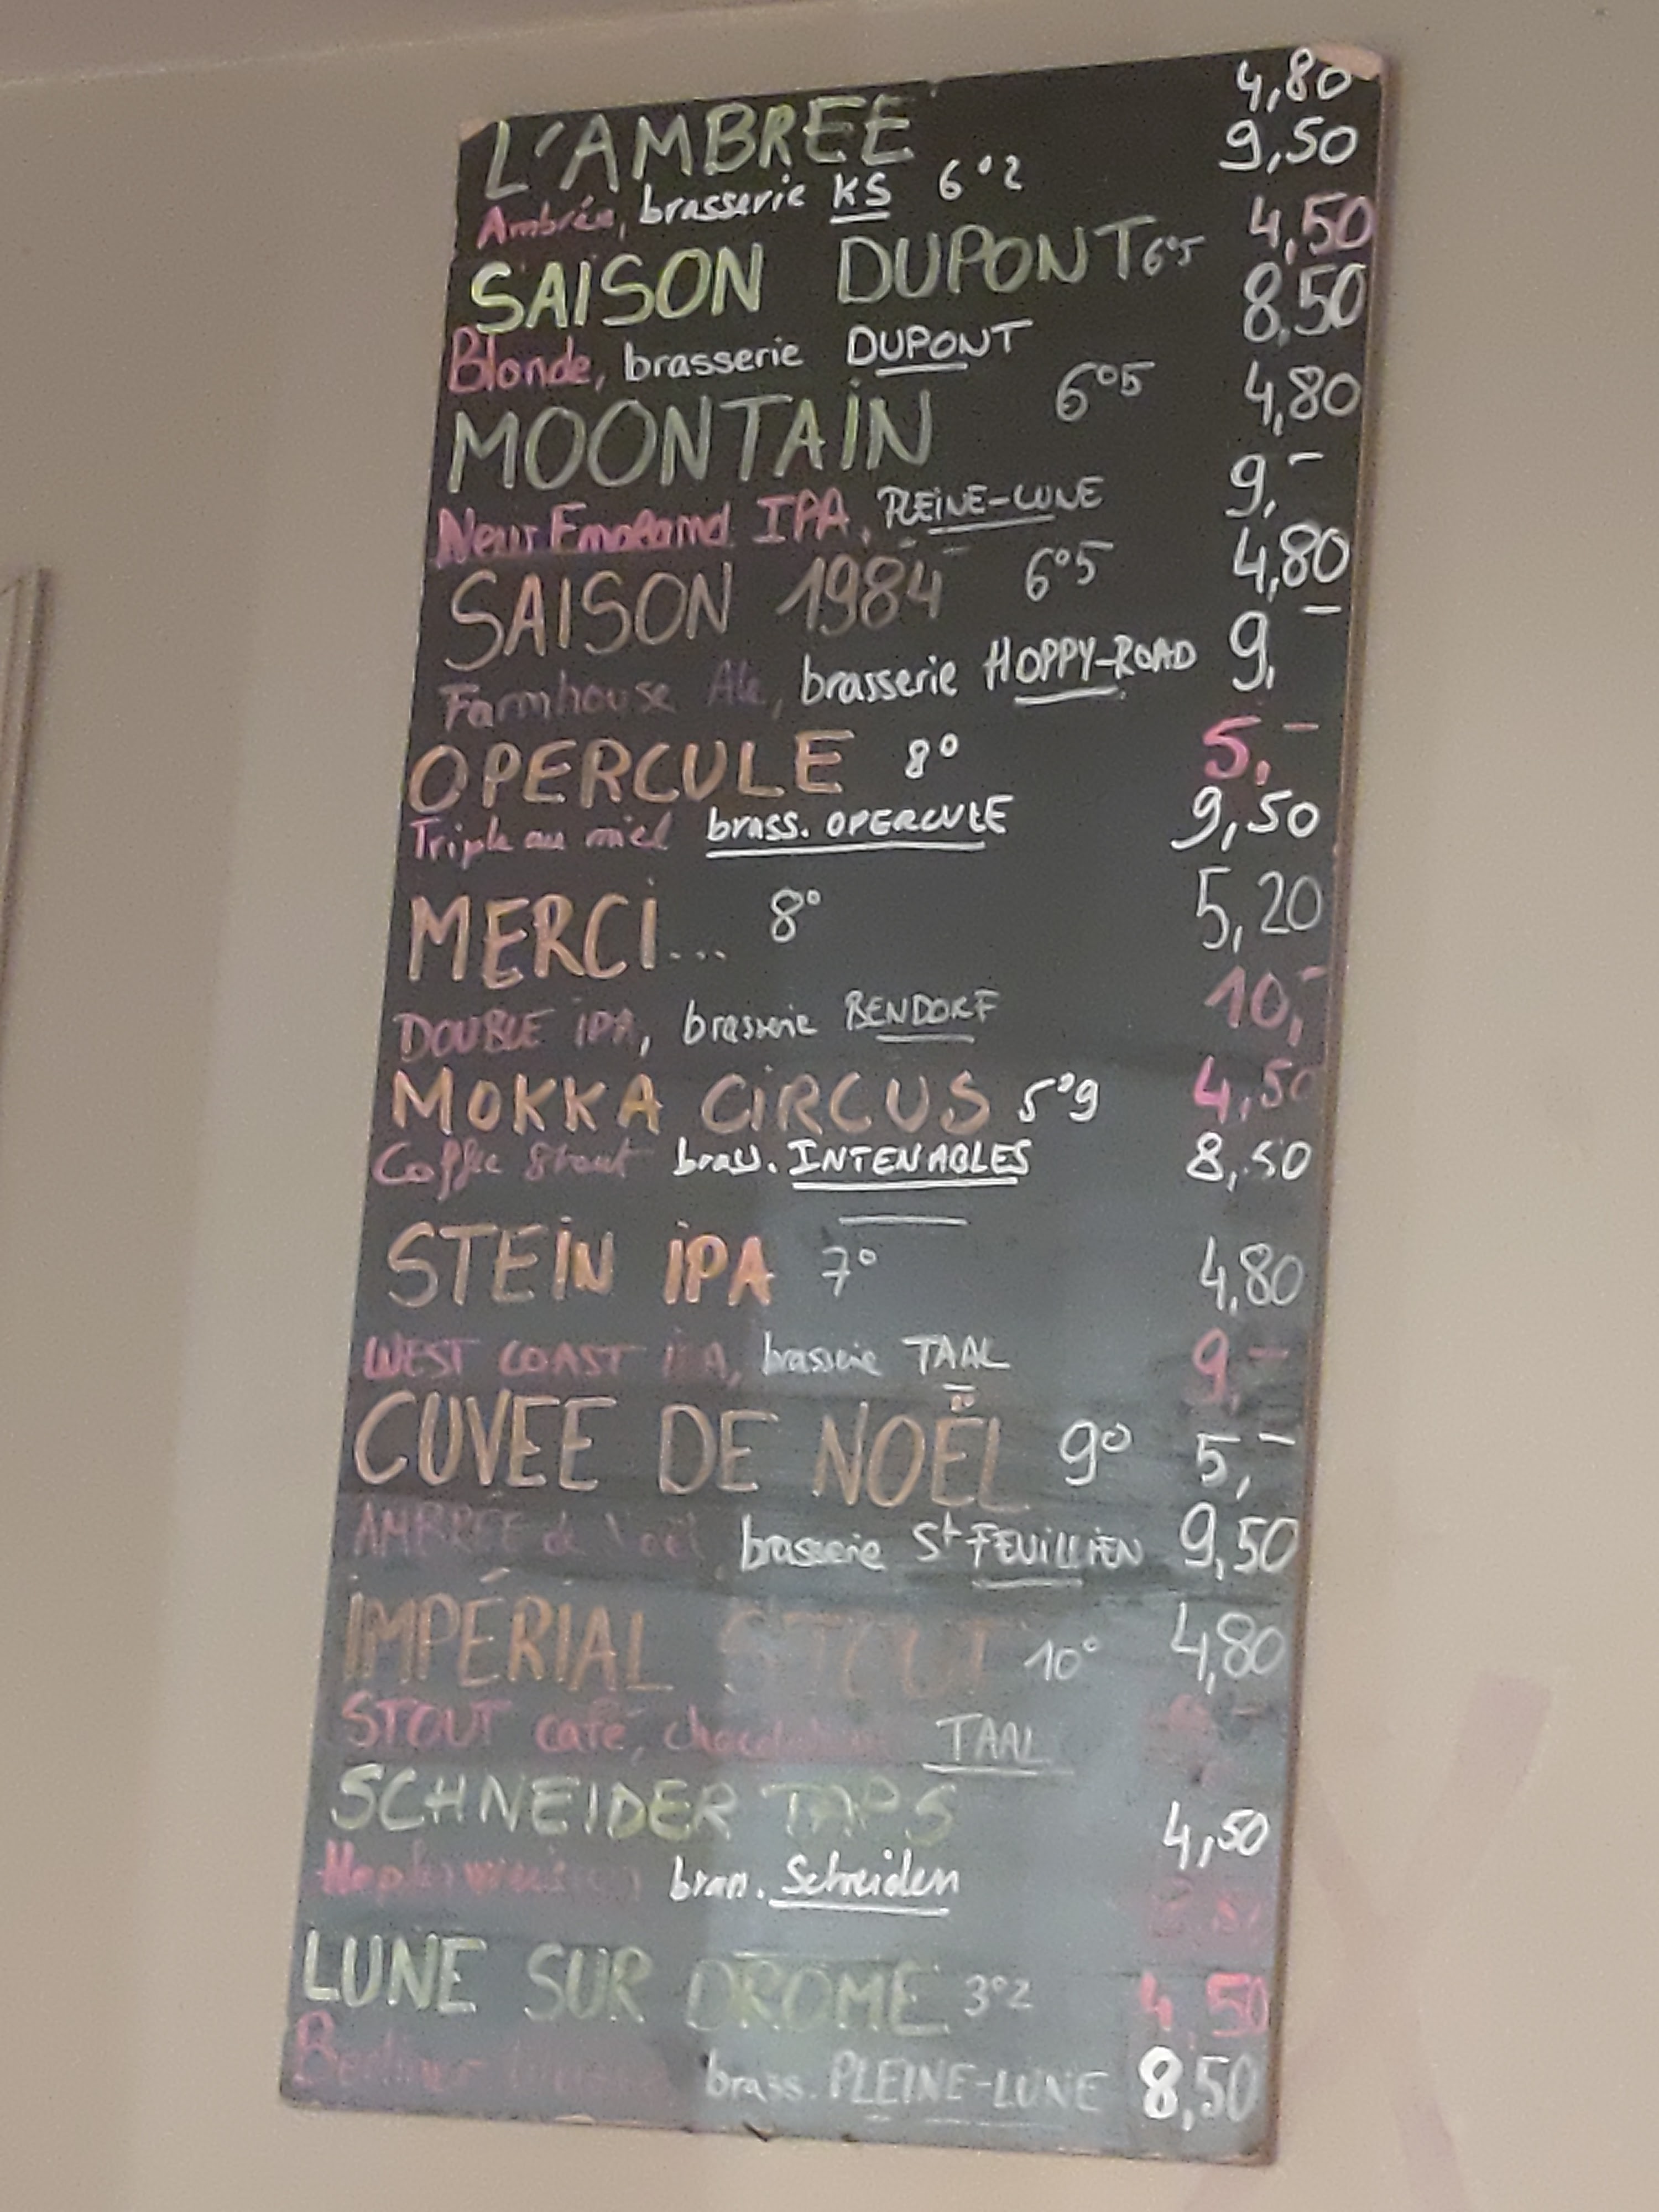 4,80
L'AMBREE 9,50
Ambrée, brasserie KS 6°2
SAISON DUPONT 6°5 4,50
8,50
Blonde, brasserie DUPONT
MOONTAIN 6°5 4,80
9,-
New England IPA, PLEINE-LUNE
SAISON 1984 6°5 4,80
Farmhouse Ale, brasserie HOPPY-ROAD 9,-
OPERCULE 8° 5,-
Triple au miel brass. OPERCULE 9,50
MERCI... 8° 5,20
DOUBLE IPA, brasserie BENDORF 10,-
MOKKA CIRCUS 5°9 4,50
Coffee Stout brass. INTENABLES 8,50
STEIN IPA 7° 4,80
WEST COAST IPA, brasserie TAAL 9,-
CUVEE DE NOËL 9° 5,-
AMBRÉE de Noël, brasserie St FEUILLIEN 9,50
IMPÉRIAL STOUT 10° 4,80
STOUT café, TAAL
SCHNEIDER TAPS 4,50
brass. Schneider
LUNE SUR DROME 3°2 4,50
Berliner brass. PLEINE-LUNE 8,50